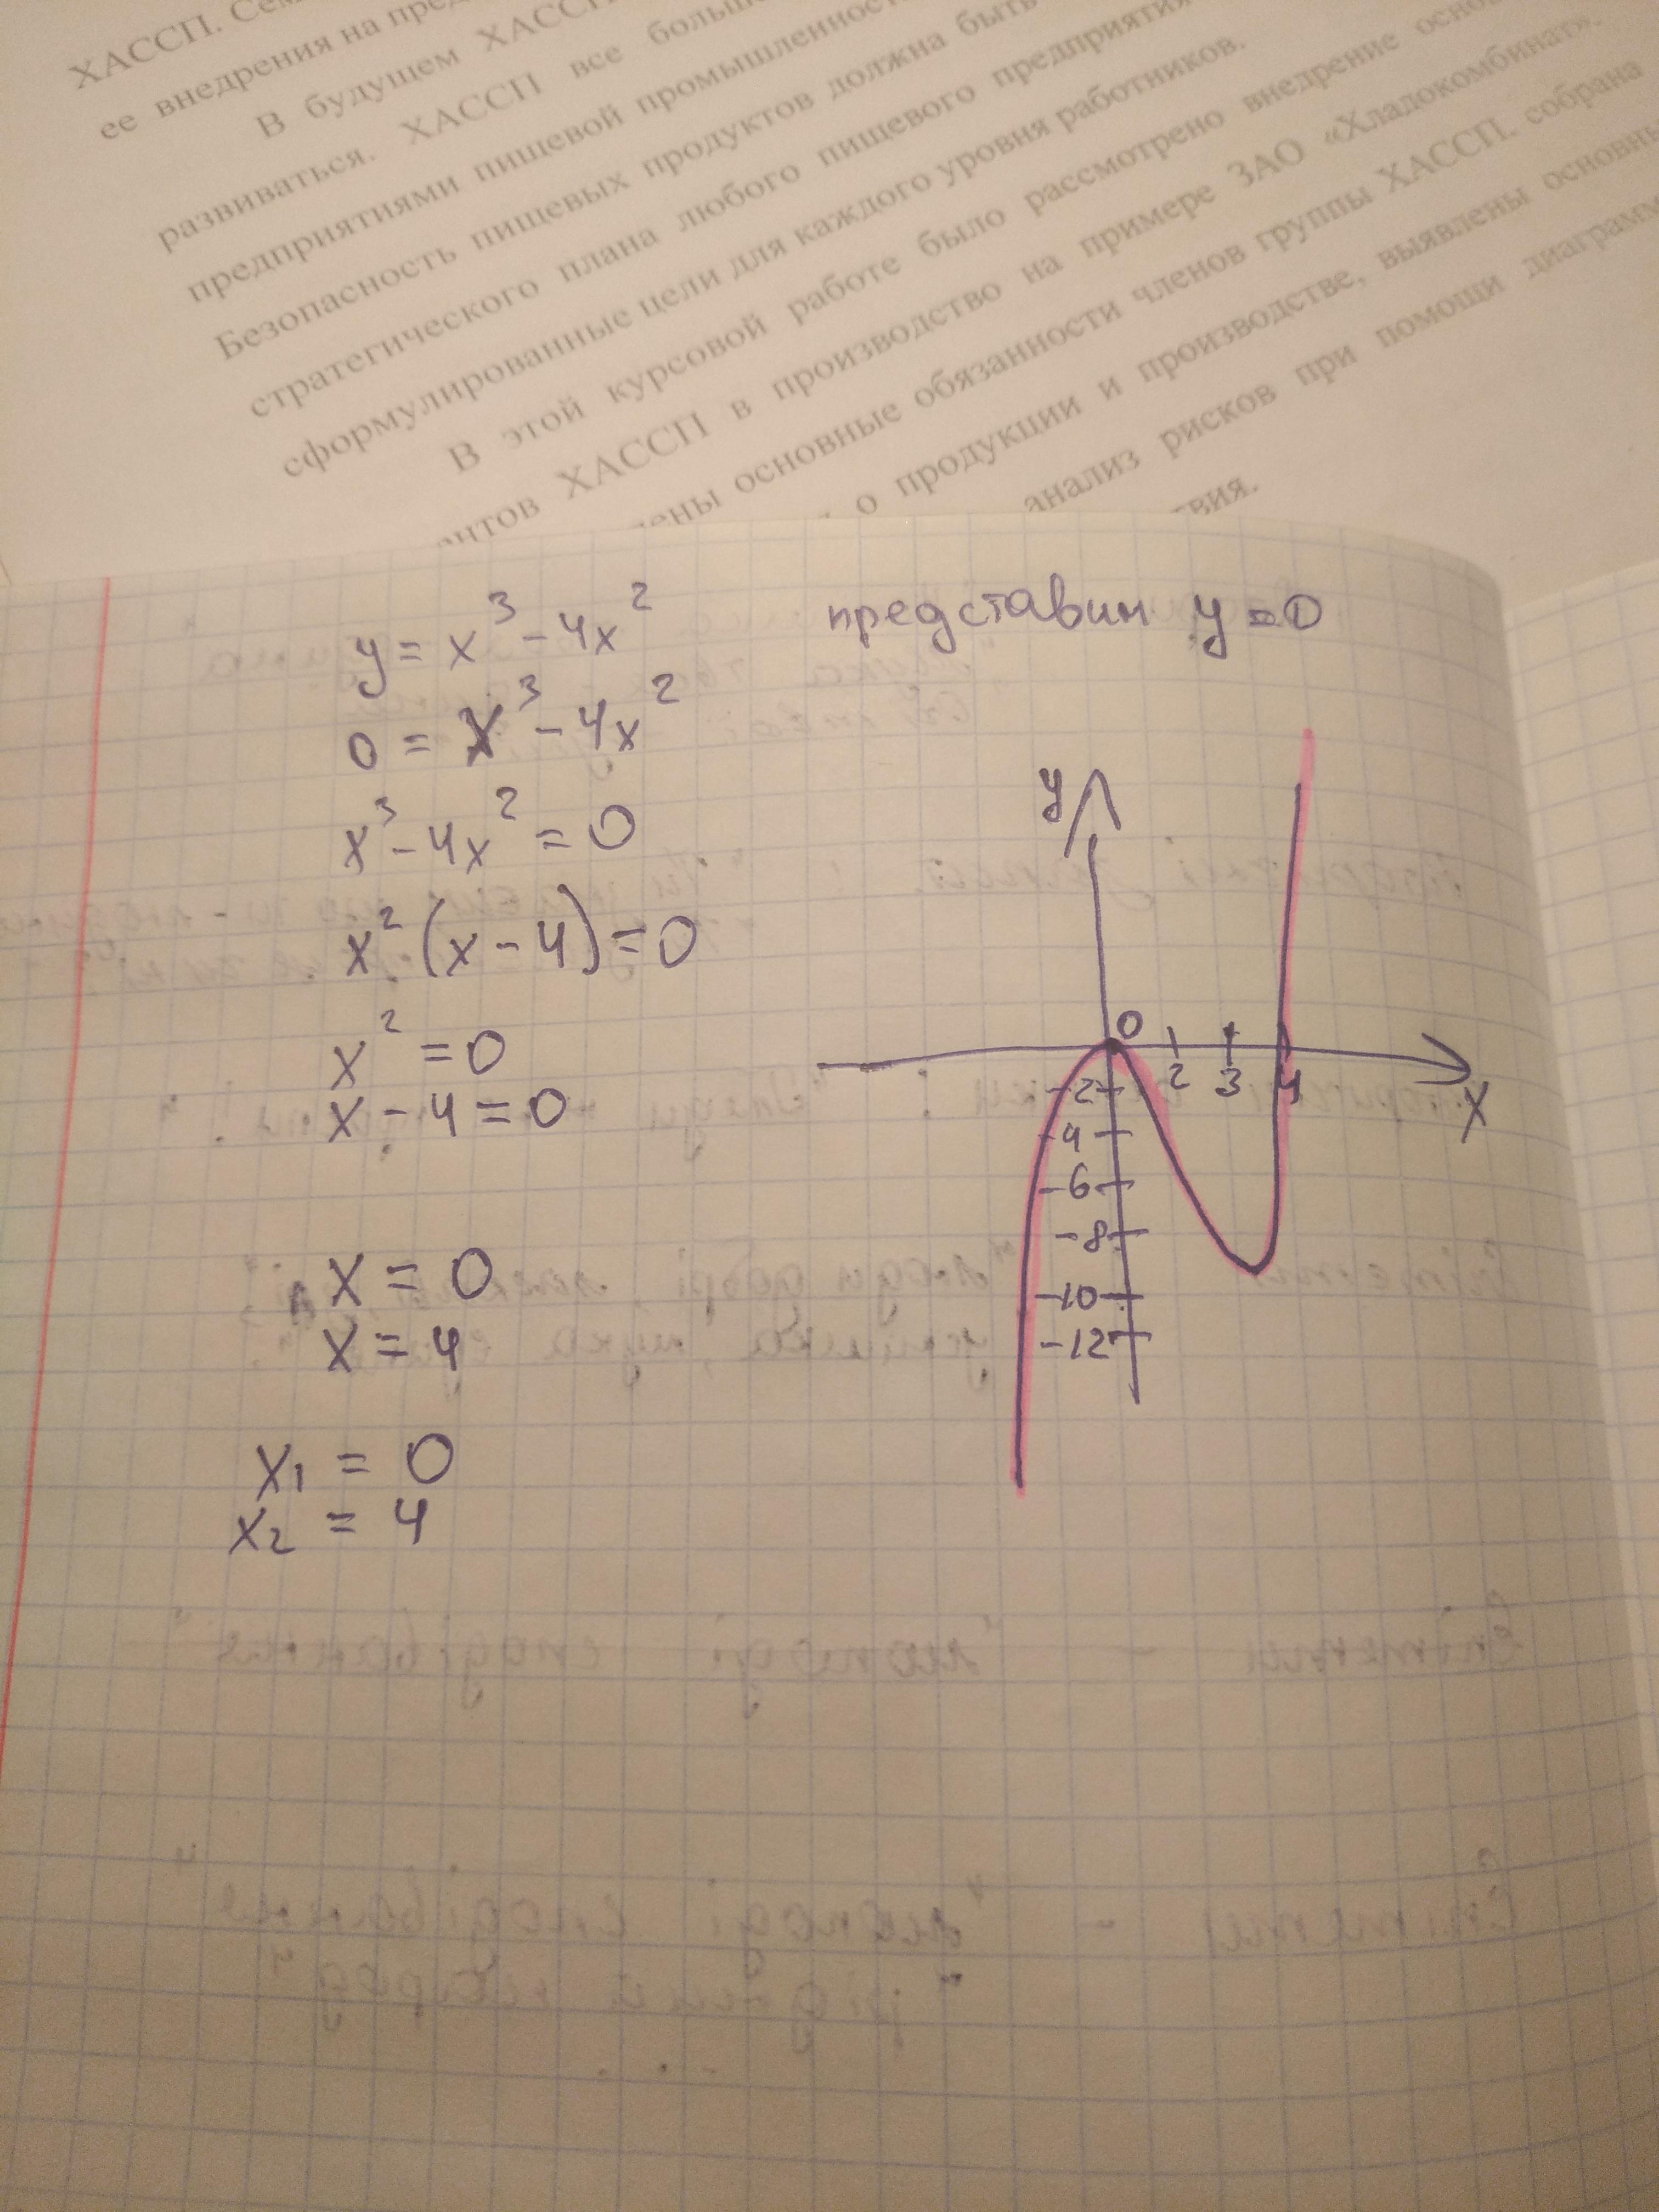 ХАССП.
ее внедрения на
В будущем ХАССП
развиваться. ХАССП все
предприятиями пищевой промышленности
Безопасность пищевых продуктов должна быть
стратегического плана любого пищевого предприятия
сформулированные цели для каждого уровня работников.
В этой курсовой работе было рассмотрено внедрение
ХАССП в производство на примере ЗАО «Хладокомбинат».
основные обязанности членов группы ХАССП, собрана
о продукции и производстве, выявлены
анализ рисков при помощи
y = x³ - 4x²
представим y = 0
0 = x³ - 4x²
x³ - 4x² = 0
x² (x - 4) = 0
x² = 0
x - 4 = 0
x = 0
x = 4
x₁ = 0
x₂ = 4
y
0
2 3 4
x
-2
-4
-6
-8
-10
-12